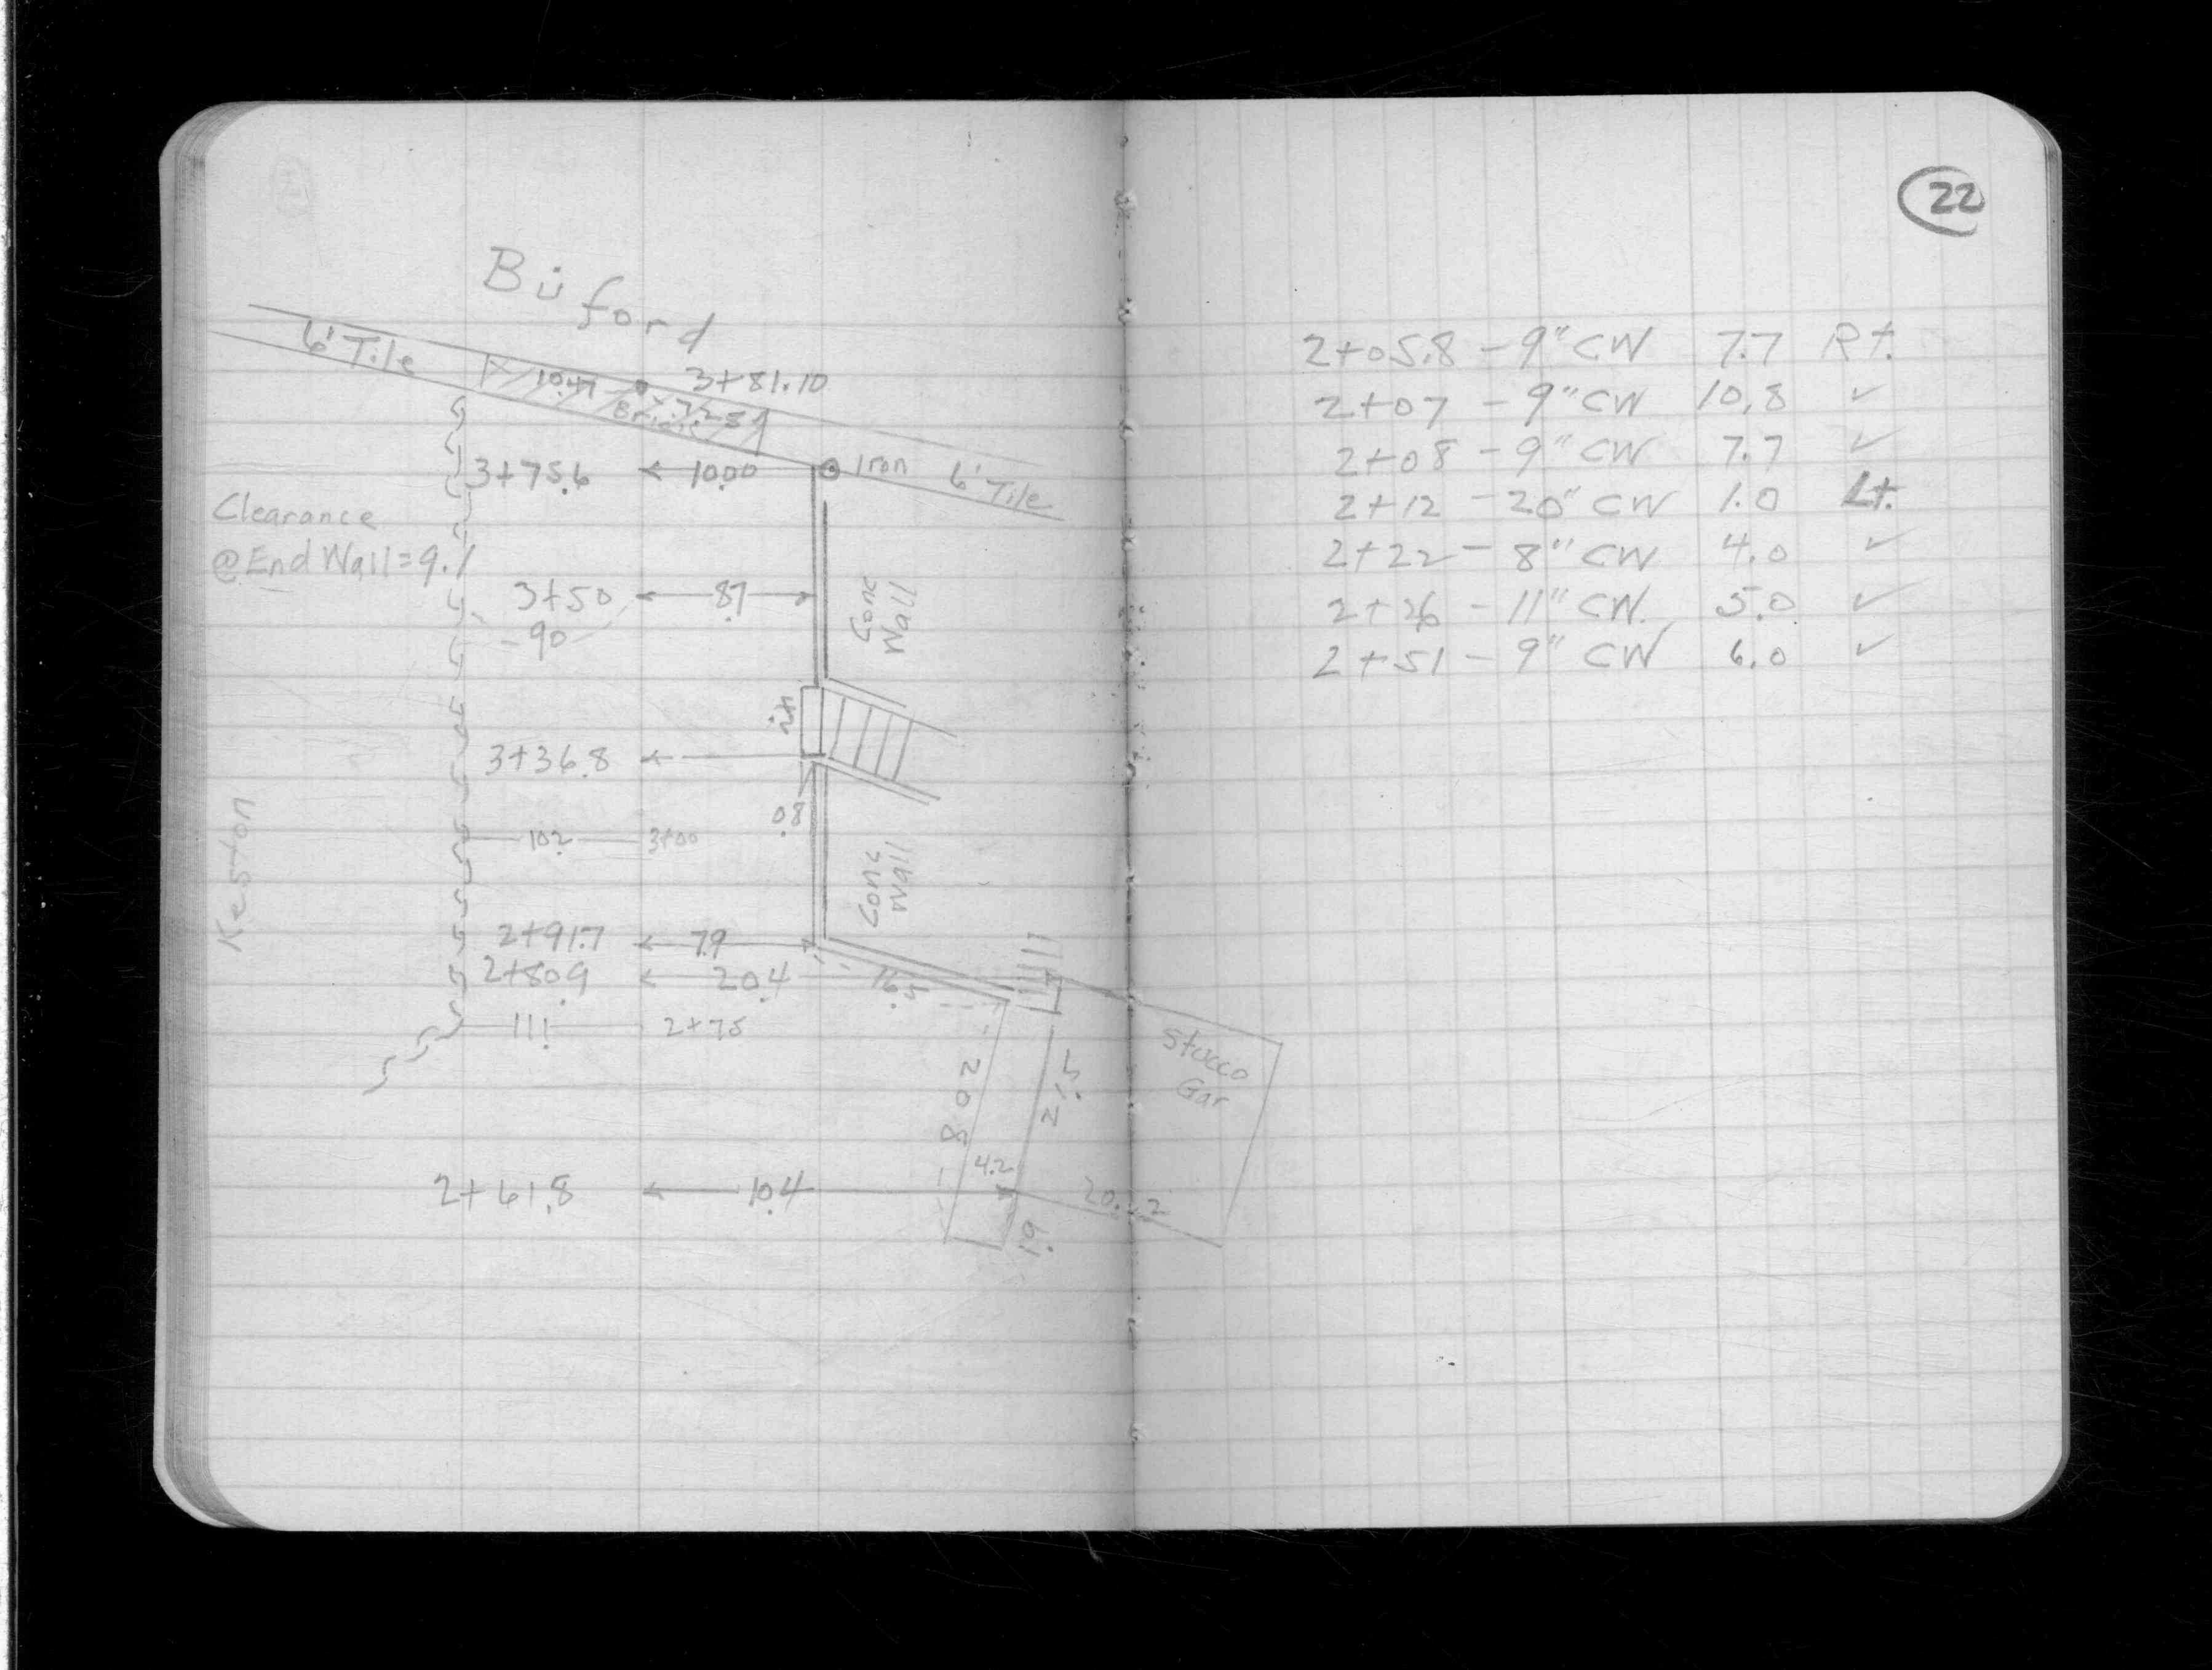 Buford
6' Tile
10.47
3+81.10
7.25
3+75.6
10.00
Iron
6' Tile
Clearance
@ End Wall = 9.1
3+50
8.7
Conc
Wall
-90-
3+36.8
0.8
10.2
3+00
Conc
Wall
Keston
2+91.7
7.9
2+80.9
20.4
16.5
11.1
2+75
Stucco
Gar
20.8
21.5
4.2
2+61.8
10.4
20.2
1.9
22
2+05.8 - 9" CW 7.7 Rt.
2+07 - 9" CW 10.8 ✓
2+08 - 9" CW 7.7 ✓
2+12 - 20" CW 1.0 Lt.
2+22 - 8" CW 4.0 ✓
2+26 - 11" CW. 5.0 ✓
2+51 - 9" CW 6.0 ✓